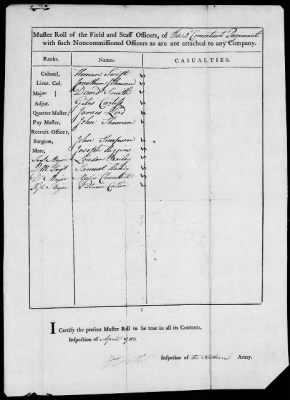 Muster Roll of the Field and Staff Officers, of the 2d Connecticut Regiment
with such Noncommissioned Officers as are not attached to any Company.
Ranks. Names. CASUALTIES.
Colonel, Heman Swift
Lieut. Col. Jonathan Johnson
Major David Smith
Adjut. Giles Curtiss
Quarter Master, James Lord
Pay Master, John Sherman
Recruit Officer,
Surgeon, John Simpson
Mate, Joseph Higgins
Serjt Major
Q M Serjt Samuel
Major Churchill
Fife Major
I Certify the present Muster Roll to be true in all its Contents.
Inspection of April 1783
Inspector of Army.